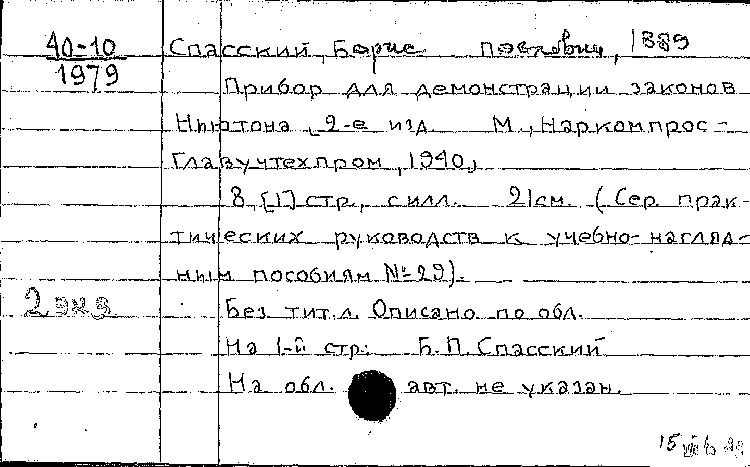 40-10
1979
Спасский, Борис Павлович, 1889
Прибор для демонстрации законов
Ньютона, 2-е изд М., Наркомпрос-
Главучтехпром, 1940,
8, [1] стр., с илл. 21 см. (Сер. прак-
тических руководств к учебно-нагляд-
ным пособиям № 29).
2 экз
Без тит. л. Описано по обл.
На 1-й стр: Б. П. Спасский
На обл. авт. не указан.
15